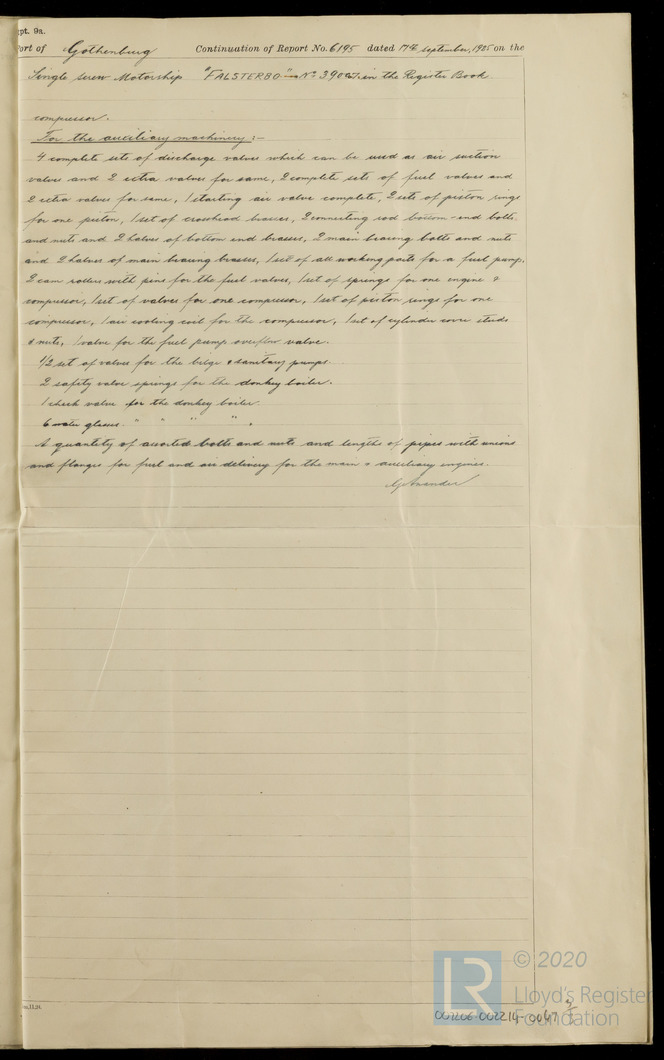 pt. 9a.
ort of Gothenburg Continuation of Report No. 6195 dated 17th september, 1925 on the
Single screw Motorship "FALSTERBO" No. 390 in the Register Book.
compressor.
For the auxiliary machinery :-
4 complete sets of discharge valves which can be used as air suction
valves and 2 extra valves for same, 2 complete sets of fuel valves and
2 extra valves for same, 1 starting air valve complete, 2 sets of piston rings
for one piston, 1 set of crosshead brasses, 2 connecting rod bottom-end bolts,
and nuts and 2 halves of bottom end brasses, 2 main bearing bolts and nuts
and 2 halves of main bearing brasses, 1 set of all working parts for a fuel pump,
2 cam rollers with pins for the fuel valves, 1 set of springs for one engine &
compressor, 1 set of valves for one compressor, 1 set of piston rings for one
compressor, 1 air cooling coil for the compressor, 1 set of cylinder cover studs
& nuts, 1 valve for the fuel pump overflow valve.
1/2 set of valves for the bilge & sanitary pumps.
2 safety valve springs for the donkey boiler.
1 check valve for the donkey boiler.
6 water glasses " " " " .
A quantity of assorted bolts and nuts and lengths of pipes with unions
and flanges for fuel and air delivery for the main & auxiliary engines.
© 2020
Lloyd's Register
Foundation
002206-002214-0067 2/3